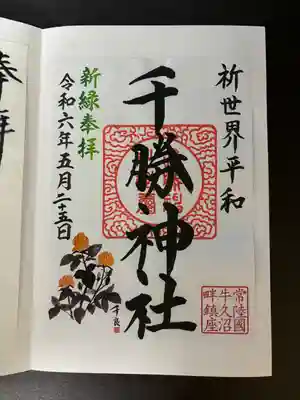 祈世界平和
千勝神社
新緑奉拝
令和六年五月二十五日
常陸國
牛久沼
畔鎮座
奉拝